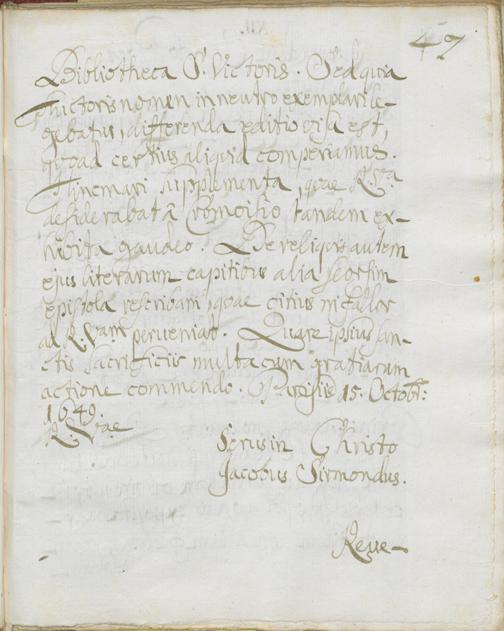 47
Bibliotheca S. Victoris. Sed quia
auctoris nomen in neutro exemplari le-
gebatur, differenda editio visa est,
quoad certius aliquid comperiamus.
Hincmari supplementa, quae R. Vra
desiderabat à Cromoisio tandem ex-
hibita gaudeo. De reliquis autem
ejus literarum capitibus alia seorsim
epistola rescribam, quae citius ni fallor
ad R. Vam perveniat. Quare ipsius san-
ctis sacrificiis multa cum gratiarum
actione commendo. Parisiis 15. Octobr:
1649.
R. Vrae
Servus in Christo
Jacobus Sirmondus.
Reve-